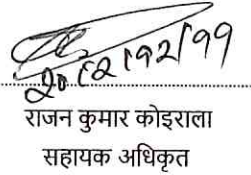 २०८२/१२/११
राजन कुमार कोइराला
सहायक अधिकृत